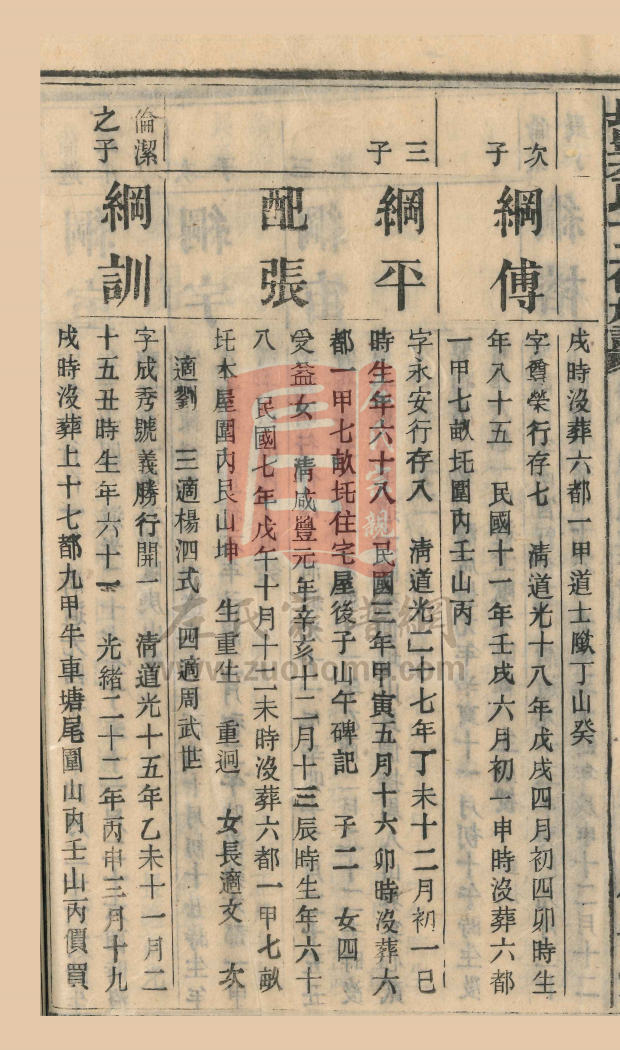 戌時沒葬六都一甲道士墩丁山癸
次子
綱傅
字尊榮行存七　清道光十八年戊戌四月初四卯時生
年八十五　民國十一年壬戌六月初一申時沒葬六都
一甲七畝圫圍內壬山丙
三子
綱平
字永安行存八　清道光二十七年丁未十二月初一巳
時生年六十八　民國三年甲寅五月十六卯時沒葬六
都一甲七畝圫住宅屋後子山午碑記　子二　女四
配張
受益女　清咸豐元年辛亥十二月十三辰時生年六十
八　民國七年戊午十月十二未時沒葬六都一甲七畝
圫本屋圍內艮山坤　生重生　重迥　女長適文　次
適劉　三適楊泗式　四適周武世
倫潔之子
綱訓
字成秀號義勝行開一　清道光十五年乙未十一月二
十五丑時生年六十一　光緒二十二年丙申三月十九
戌時沒葬上十七都九甲牛車塘尾圍山內壬山丙價買
左氏家譜網
www.zuohome.com